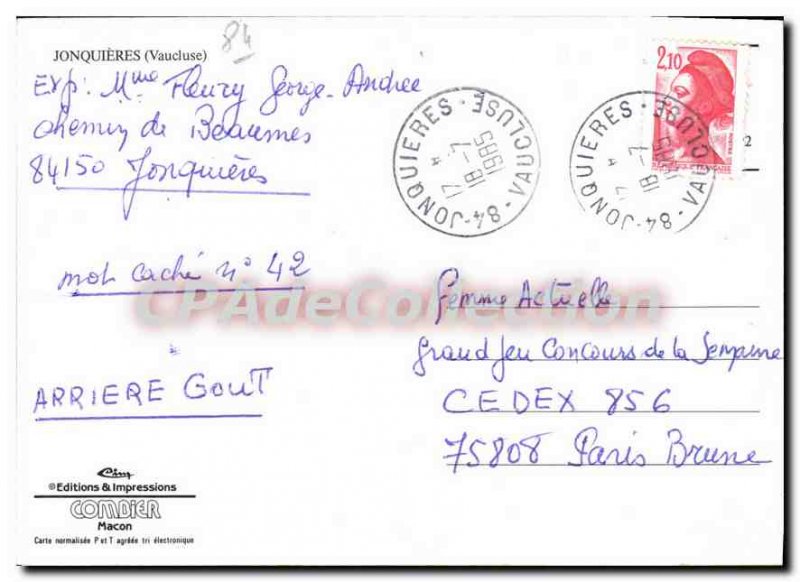 84
JONQUIÈRES (Vaucluse)
Exp: Mme Fleury George-Andrée
chemin de Beaumes
84150 Jonquières
mot caché n° 42
ARRIERE GOUT
84-JONQUIERES · VAUCLUSE
17 H
18-7
1985
84-JONQUIERES · VAUCLUSE
17 H
18-7
1985
2,10
FRANÇAISE
2
Femme Actuelle
Grand Jeu Concours de la Semaine
CEDEX 856
75808 Paris Brune
CPAdeCollection
Cim
©Editions & Impressions
COMBIER
Macon
Carte normalisée P et T agréée tri électronique